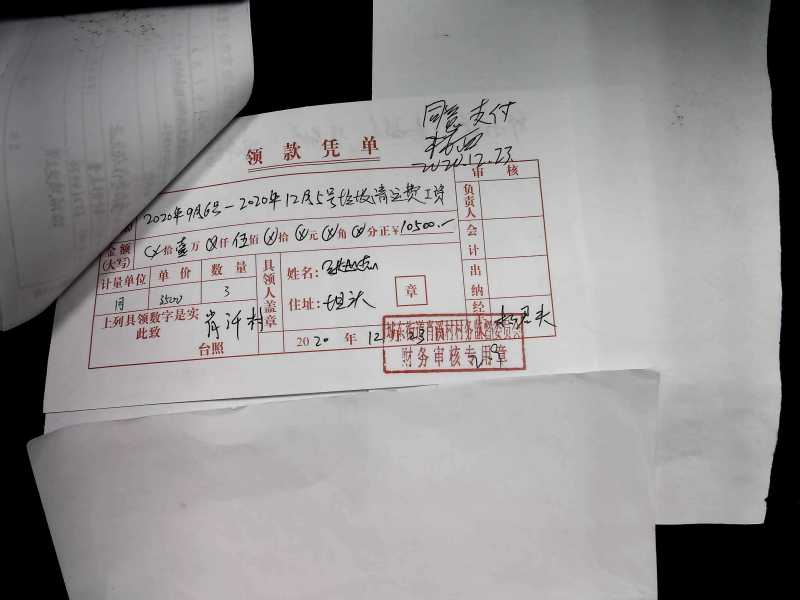 同意支付
2020.12.23
领款凭单
审核
2020年9月6号—2020年12月5号垃圾清运费工资
负责人
金额(大写)
⊗拾壹万⊗仟伍佰⊗拾⊗元⊗角⊗分正¥10500.—
会计
计量单位 单价 数量
具领人盖章
姓名:
月 3500 3
住址:坦头
章
出纳
上列具领数字是实
此致
肖汗村
台照
2020年12月23
经
城东街道肖溪村村务监督委员会
财务审核专用章